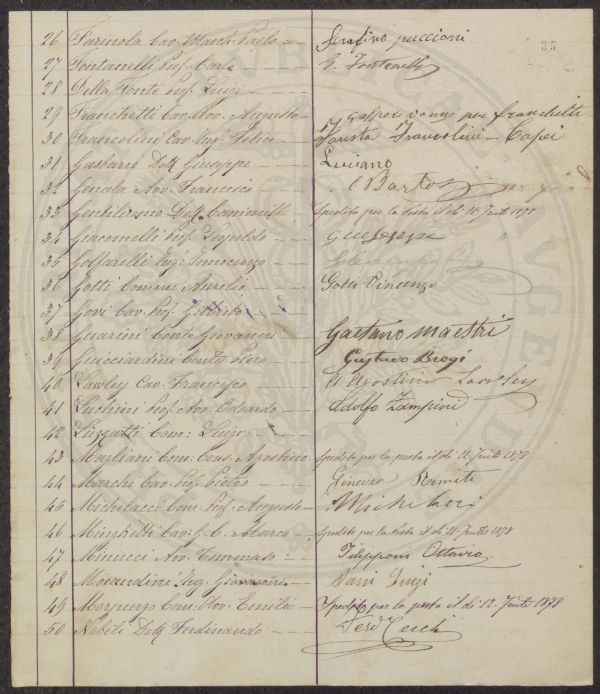 35
26 Farinola Cav. March. Paolo Serafino puccioni
27 Fontanelli Prof. Carlo Fontanelli
28 Della Fonte Prof. Luigi
29 Franchetti Cav. Avv. Augusto per franchetti
30 Francolini Cav. Ing. Felice Fausta Francolini Capei
31 Gasbarri Dott. Giuseppe Luciano
32 Genala Av. Francesco
33 Gentiluomo Dott. Cammillo Spedito per la posta il di 1878
34 Giacomelli Prof. Leopoldo Giuseppe
35 Golfarelli Ing. Innocenzo
36 Gotti Comm. Aurelio Gotti Vincenzo
37 Govi Cav. Prof. Gilberto
38 Guarini Conte Giovanni Gaetano maestri
39 Guicciardini Conte Piero Gustavo Brogi
40 Lawley Cav. Francesco Agostini Lawley
41 Luchini Prof. Av. Odoardo Adolfo Zampini
42 Luzzatti Com: Luigi
43 Magliani Com: Cons. Agostino Spedito per la posta il di 12 1878
44 Marchi Cav. Prof. Pietro Ginevra
45 Michelacci Com. Ing. Augusto
46 Minghetti Cav. G. C. Marco Spedito per la posta il di 1878
47 Minucci Av. Tommaso Filipponi Ottavio
48 Morandini Ing. Giovanni Vani Luigi
49 Morpurgo Com. Av. Emilio Spedito per la posta il di 12. 1878
50 Nobili Dott. Ferdinando Ferd Cecchi